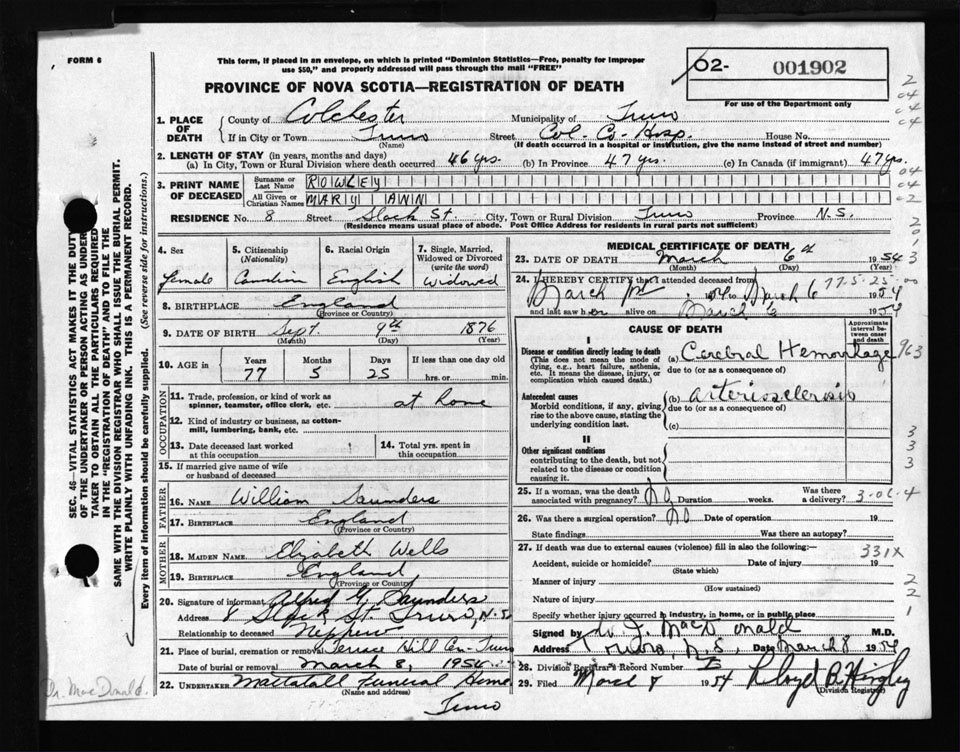 FORM 6
This form, if placed in an envelope, on which is printed "Dominion Statistics—Free, penalty for improper
use $50," and properly addressed will pass through the mail "FREE"
62- 001902
For use of the Department only
PROVINCE OF NOVA SCOTIA—REGISTRATION OF DEATH
1. PLACE OF DEATH
County of Colchester Municipality of Truro
If in City or Town Truro Street Col. Co. Hosp. House No.
(Name) (If death occurred in a hospital or institution, give the name instead of street and number)
2. LENGTH OF STAY (in years, months and days)
(a) In City, Town or Rural Division where death occurred 46 yrs. (b) In Province 47 yrs. (c) In Canada (if immigrant) 47 yrs.
3. PRINT NAME OF DECEASED
Surname or Last Name ROWLEY
All Given or Christian Names MARY ANN
RESIDENCE No. 8 Street City, Town or Rural Division Truro Province N.S.
(Residence means usual place of abode. Post Office Address for residents in rural parts not sufficient)
4. Sex female
5. Citizenship (Nationality) Canadian
6. Racial Origin English
7. Single, Married, Widowed or Divorced (write the word) Widowed
8. BIRTHPLACE England
(Province or Country)
9. DATE OF BIRTH Sept. 9th 1876
(Month) (Day) (Year)
10. AGE in Years Months Days If less than one day old
77 5 25 hrs. or min.
OCCUPATION
11. Trade, profession, or kind of work as
spinner, teamster, office clerk, etc. at home
12. Kind of industry or business, as cotton-
mill, lumbering, bank, etc.
13. Date deceased last worked
at this occupation
14. Total yrs. spent in
this occupation
15. If married give name of wife
or husband of deceased
FATHER
16. NAME William Saunders
17. BIRTHPLACE England
(Province or Country)
MOTHER
18. MAIDEN NAME Elizabeth Wells
19. BIRTHPLACE England
(Province or Country)
20. Signature of informant Alfred G. Saunders
Address St. Truro, N.S.
Relationship to deceased Nephew
21. Place of burial, cremation or removal Terrace Hill Cem Truro
Date of burial or removal March 8, 1954
22. UNDERTAKER Mattatall Funeral Home
(Name and address)
Truro
MEDICAL CERTIFICATE OF DEATH
23. DATE OF DEATH March 6th 1954
(Month) (Day) (Year)
24. I HEREBY CERTIFY that I attended deceased from 77-5-25
March 1st 1954 to March 6 1954
and last saw her alive on March 6 1954
CAUSE OF DEATH
Approximate interval between onset and death
I
Disease or condition directly leading to death
(This does not mean the mode of
dying, e.g., heart failure, asthenia,
etc. It means the disease, injury, or
complication which caused death.)
(a) Cerebral Hemorrhage
due to (or as a consequence of)
963
Antecedent causes
Morbid conditions, if any, giving
rise to the above cause, stating the
underlying condition last.
(b) arteriosclerosis
due to (or as a consequence of)
(c)
II
Other significant conditions
contributing to the death, but not
related to the disease or condition
causing it.
25. If a woman, was the death
associated with pregnancy? No Duration weeks. Was there a delivery? 3-06-4
26. Was there a surgical operation? No Date of operation 19
State findings Was there an autopsy?
27. If death was due to external causes (violence) fill in also the following:— 331X
Accident, suicide or homicide? Date of injury 19
(State which)
Manner of injury
(How sustained)
Nature of injury
Specify whether injury occurred in industry, in home, or in public place
Signed by J. MacDonald M.D.
Address Truro, N.S. Date March 8 1954
28. Division Registrar's Record Number
29. Filed March 1954 Lloyd B.
(Division Registrar)
SEC. 46—VITAL STATISTICS ACT MAKES IT THE DUTY
OF THE UNDERTAKER OR PERSON ACTING AS UNDER-
TAKER TO OBTAIN ALL THE PARTICULARS REQUIRED
IN THE "REGISTRATION OF DEATH" AND TO FILE THE
SAME WITH THE DIVISION REGISTRAR WHO SHALL ISSUE THE BURIAL PERMIT.
WRITE PLAINLY WITH UNFADING INK. THIS IS A PERMANENT RECORD.
Every item of information should be carefully supplied. (See reverse side for instructions.)
Dr. MacDonald.